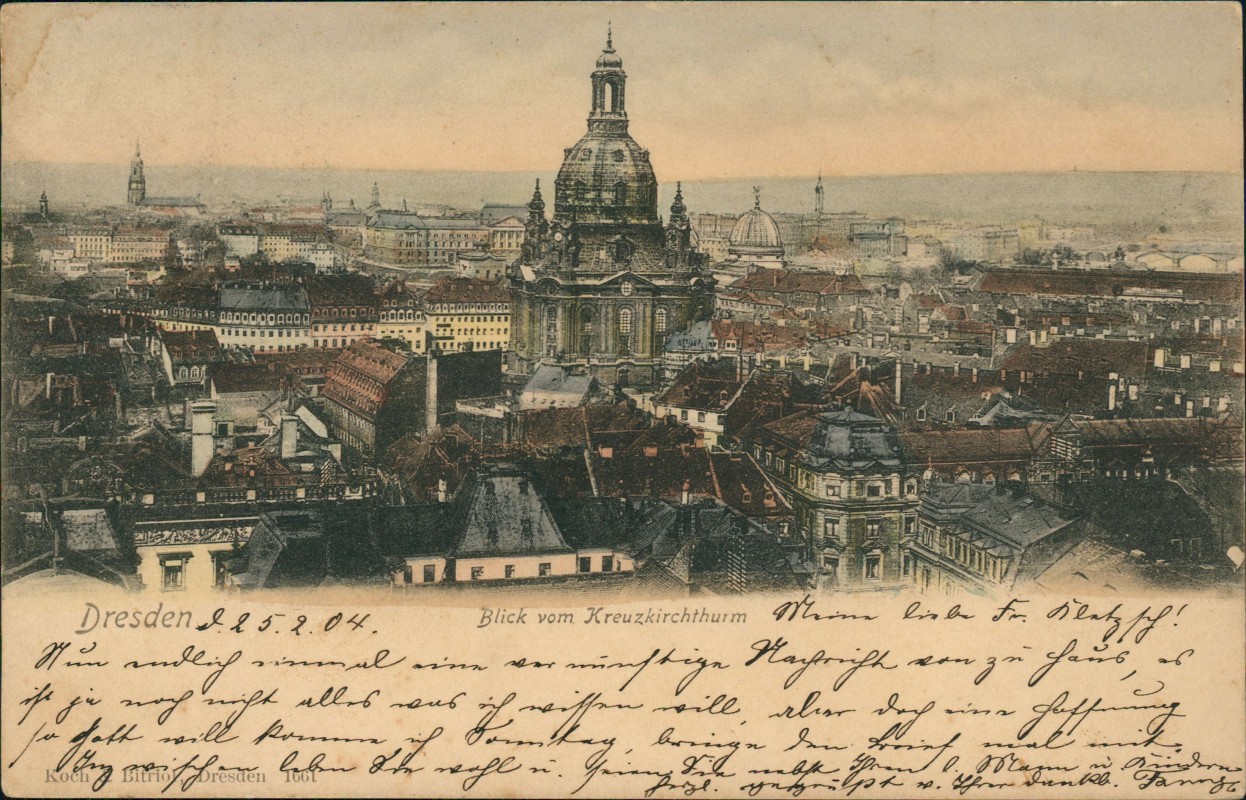 Dresden d. 25.2.04. Blick vom Kreuzkirchthurm Meine liebe Fr. Kletzsch!
Nun endlich einmal eine vernünftige Nachricht von zu Haus, es
ist ja noch nicht alles was ich wissen will, aber doch eine Hoffnung
so Gott will komme ich Sonntag, bringe den Brief mal mit.
Inzwischen leben Sie wohl u. seien Sie nebst Ihren l. Mann u Kindern
herzl. gegrüßt v. Ihrer dankb.
Koch & Bitriol, Dresden 1661